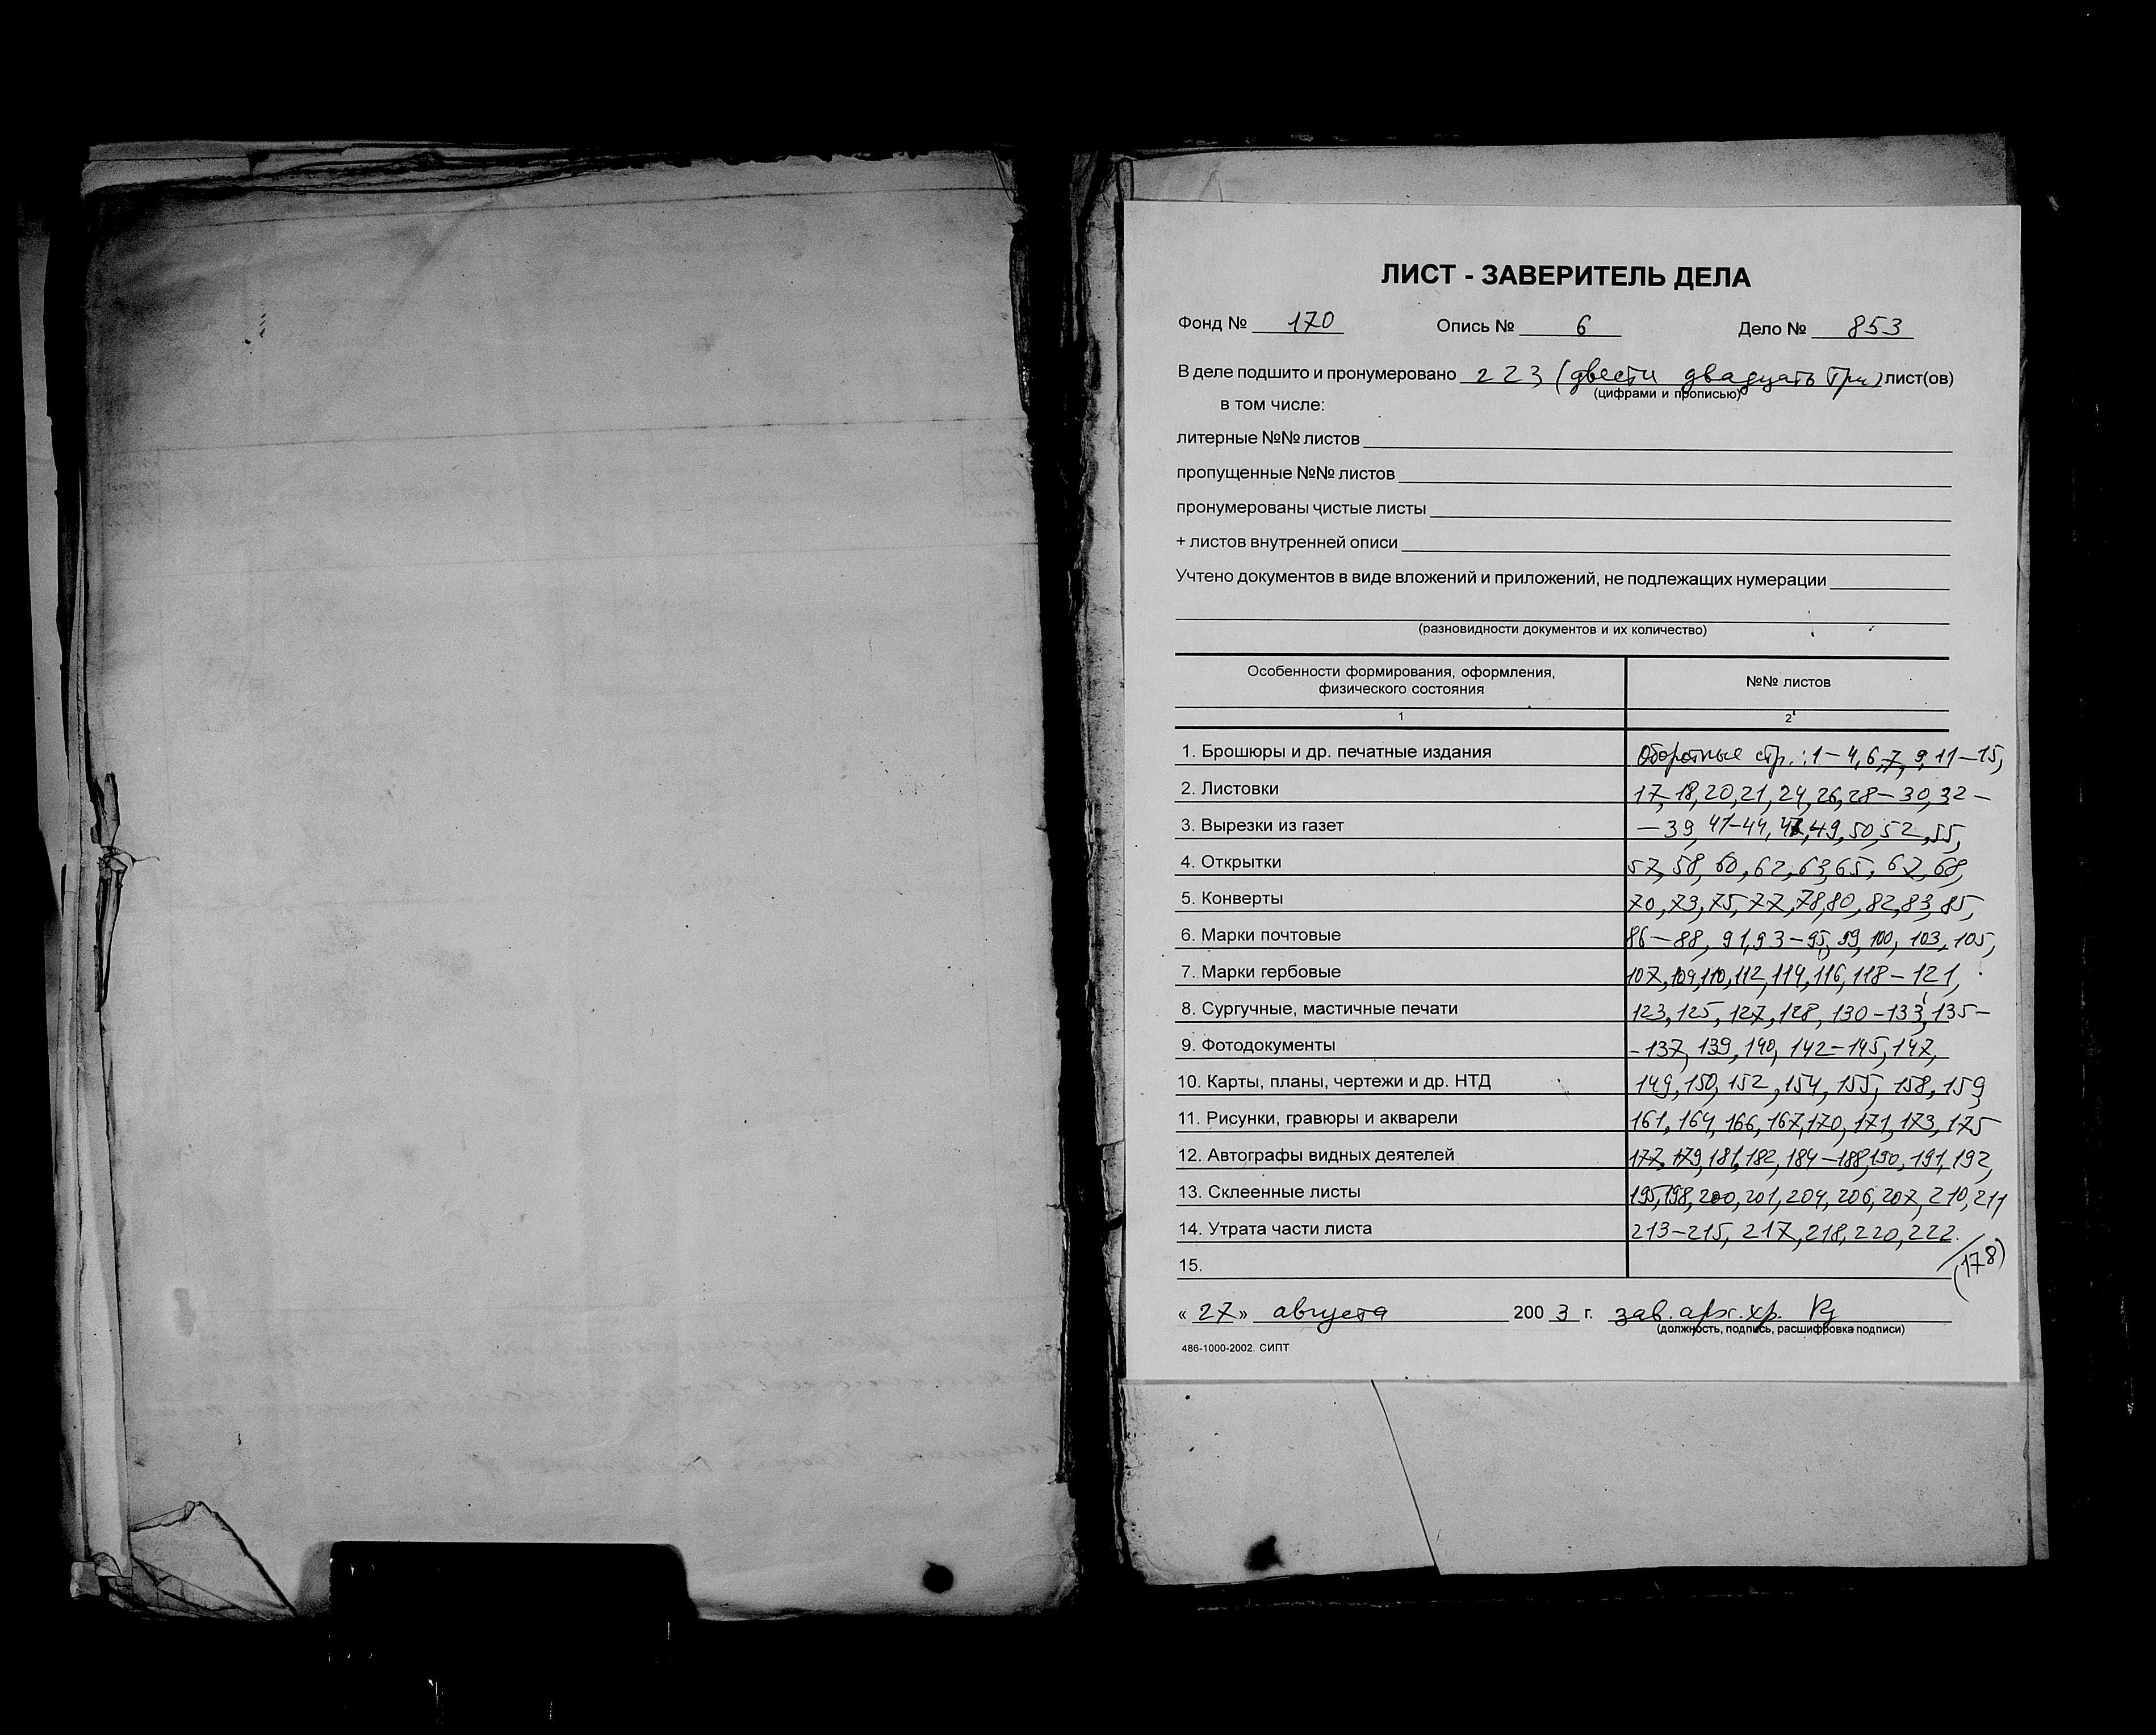 ЛИСТ - ЗАВЕРИТЕЛЬ ДЕЛА
Фонд № 170 Опись № 6 Дело № 853
В деле подшито и пронумеровано 223 (двести двадцать три) лист(ов)
(цифрами и прописью)
в том числе:
литерные №№ листов
пропущенные №№ листов
пронумерованы чистые листы
+ листов внутренней описи
Учтено документов в виде вложений и приложений, не подлежащих нумерации
(разновидности документов и их количество)
Особенности формирования, оформления, физического состояния №№ листов
1 2
1. Брошюры и др. печатные издания Оборотные стр.: 1–4, 6, 7, 9, 11–15,
2. Листовки 17, 18, 20, 21, 24, 26, 28–30, 32–
3. Вырезки из газет –39, 41–44, 47, 49, 50, 52, 55,
4. Открытки 57, 58, 60, 62, 63, 65, 67, 68,
5. Конверты 70, 73, 75, 77, 78, 80, 82, 83, 85,
6. Марки почтовые 86–88, 91, 93–95, 99, 100, 103, 105,
7. Марки гербовые 107, 109, 110, 112, 114, 116, 118–121,
8. Сургучные, мастичные печати 123, 125, 127, 128, 130–133, 135–
9. Фотодокументы –137, 139, 140, 142–145, 147,
10. Карты, планы, чертежи и др. НТД 149, 150, 152, 154, 155, 158, 159,
11. Рисунки, гравюры и акварели 161, 164, 166, 167, 170, 171, 173, 175
12. Автографы видных деятелей 177, 179, 181, 182, 184–188, 190, 191, 192,
13. Склеенные листы 195, 198, 200, 201, 204, 206, 207, 210, 211
14. Утрата части листа 213–215, 217, 218, 220, 222.
15. (178)
« 27 » августа 200 3 г. зав. арх. хр.
(должность, подпись, расшифровка подписи)
486-1000-2002. СИПТ